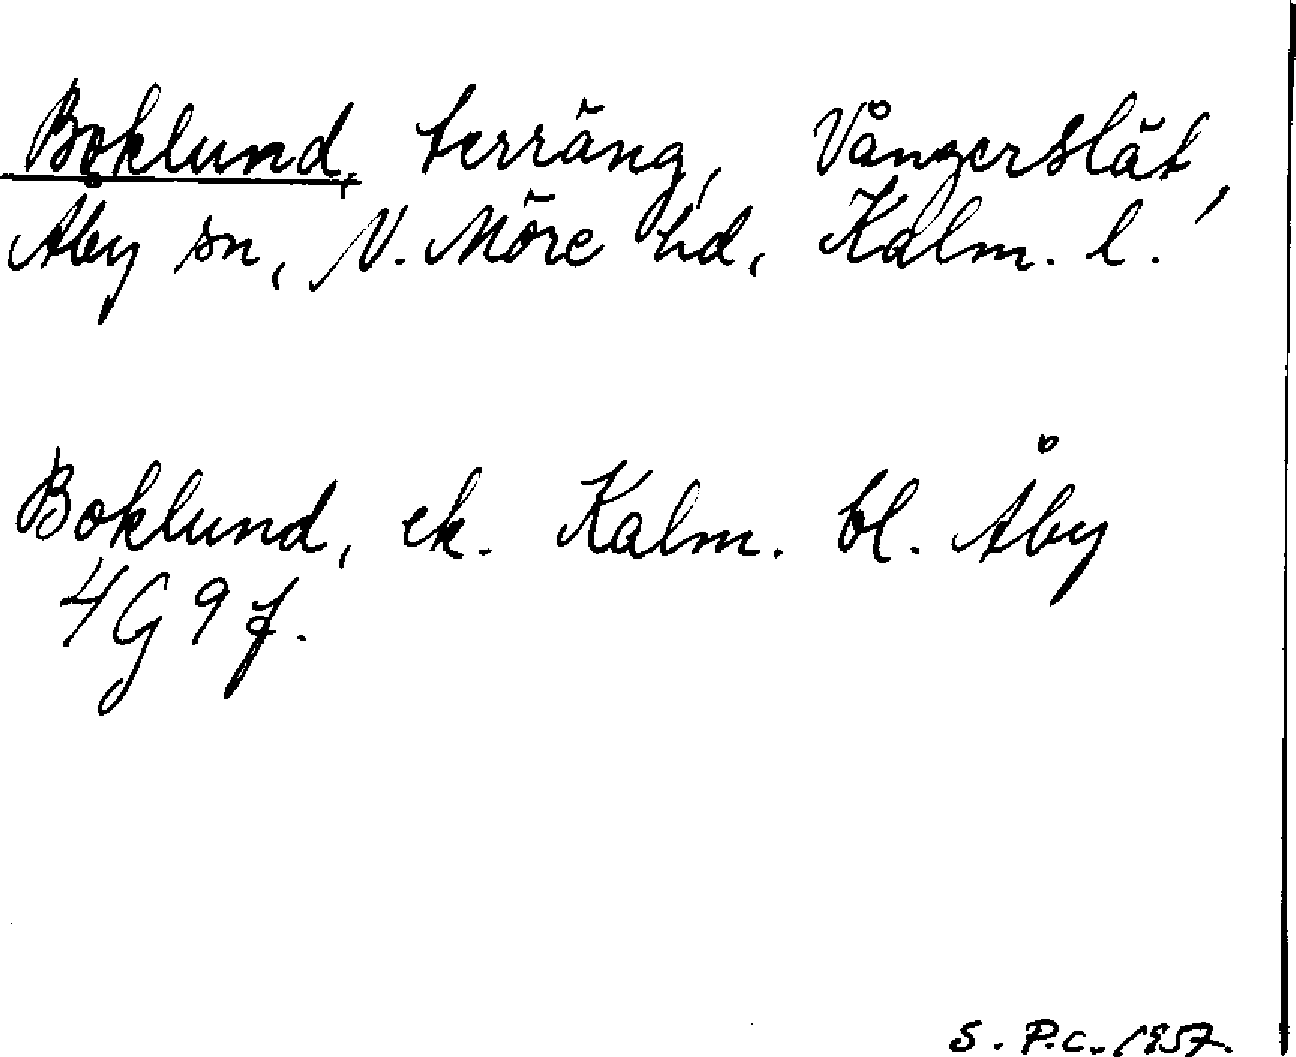 Boklund, terräng, Vångerslät,
Åby sn, N. Möre hd, Kalm. l.
Boklund, ek. Kalm. bl. Åby
4G 9 f.
S. P.c. 1957.